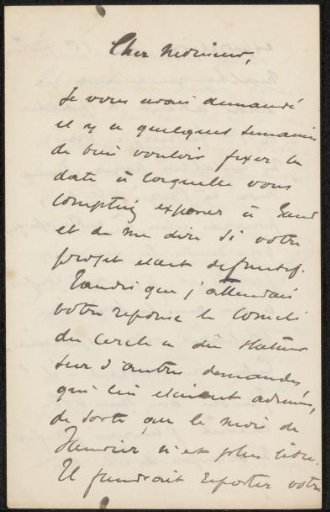 Cher Monsieur,
Je vous avais demandé
il y a quelques semaines
de bien vouloir fixer la
date à laquelle vous
comptiez exposer à Gand
et de me dire si votre
projet était définitif.
Tandis que j'attendais
votre réponse le Conseil
du Cercle a dû statuer
sur d'autres demandes
qui lui étaient adressées,
de sorte que le mois de
Janvier n'est plus libre.
Il faudrait reporter votre